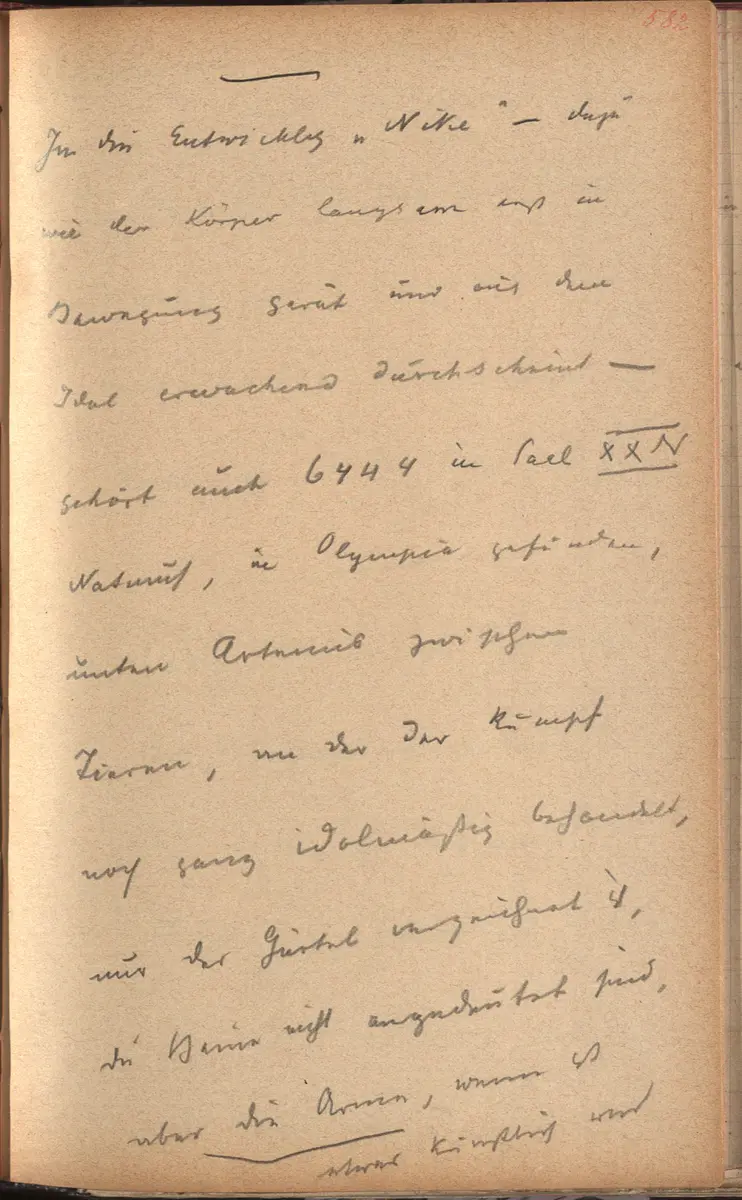 582
In die Entwicklg „Nike" — dazu
wie der Körper langsam erst in
Bewegung gerät und aus dem
Idol erwachend durchscheint —
gehört auch 6444 in Sael XXN
in Olympia gefunden,
unten Artemis zwischen
Tieren, an der der Rumpf
noch ganz idolmäßig behandelt,
nur der Gürtel verzeichnet is,
die Beine nicht angedeutet sind,
aber die Arme, wenn es
etwas künstlich und